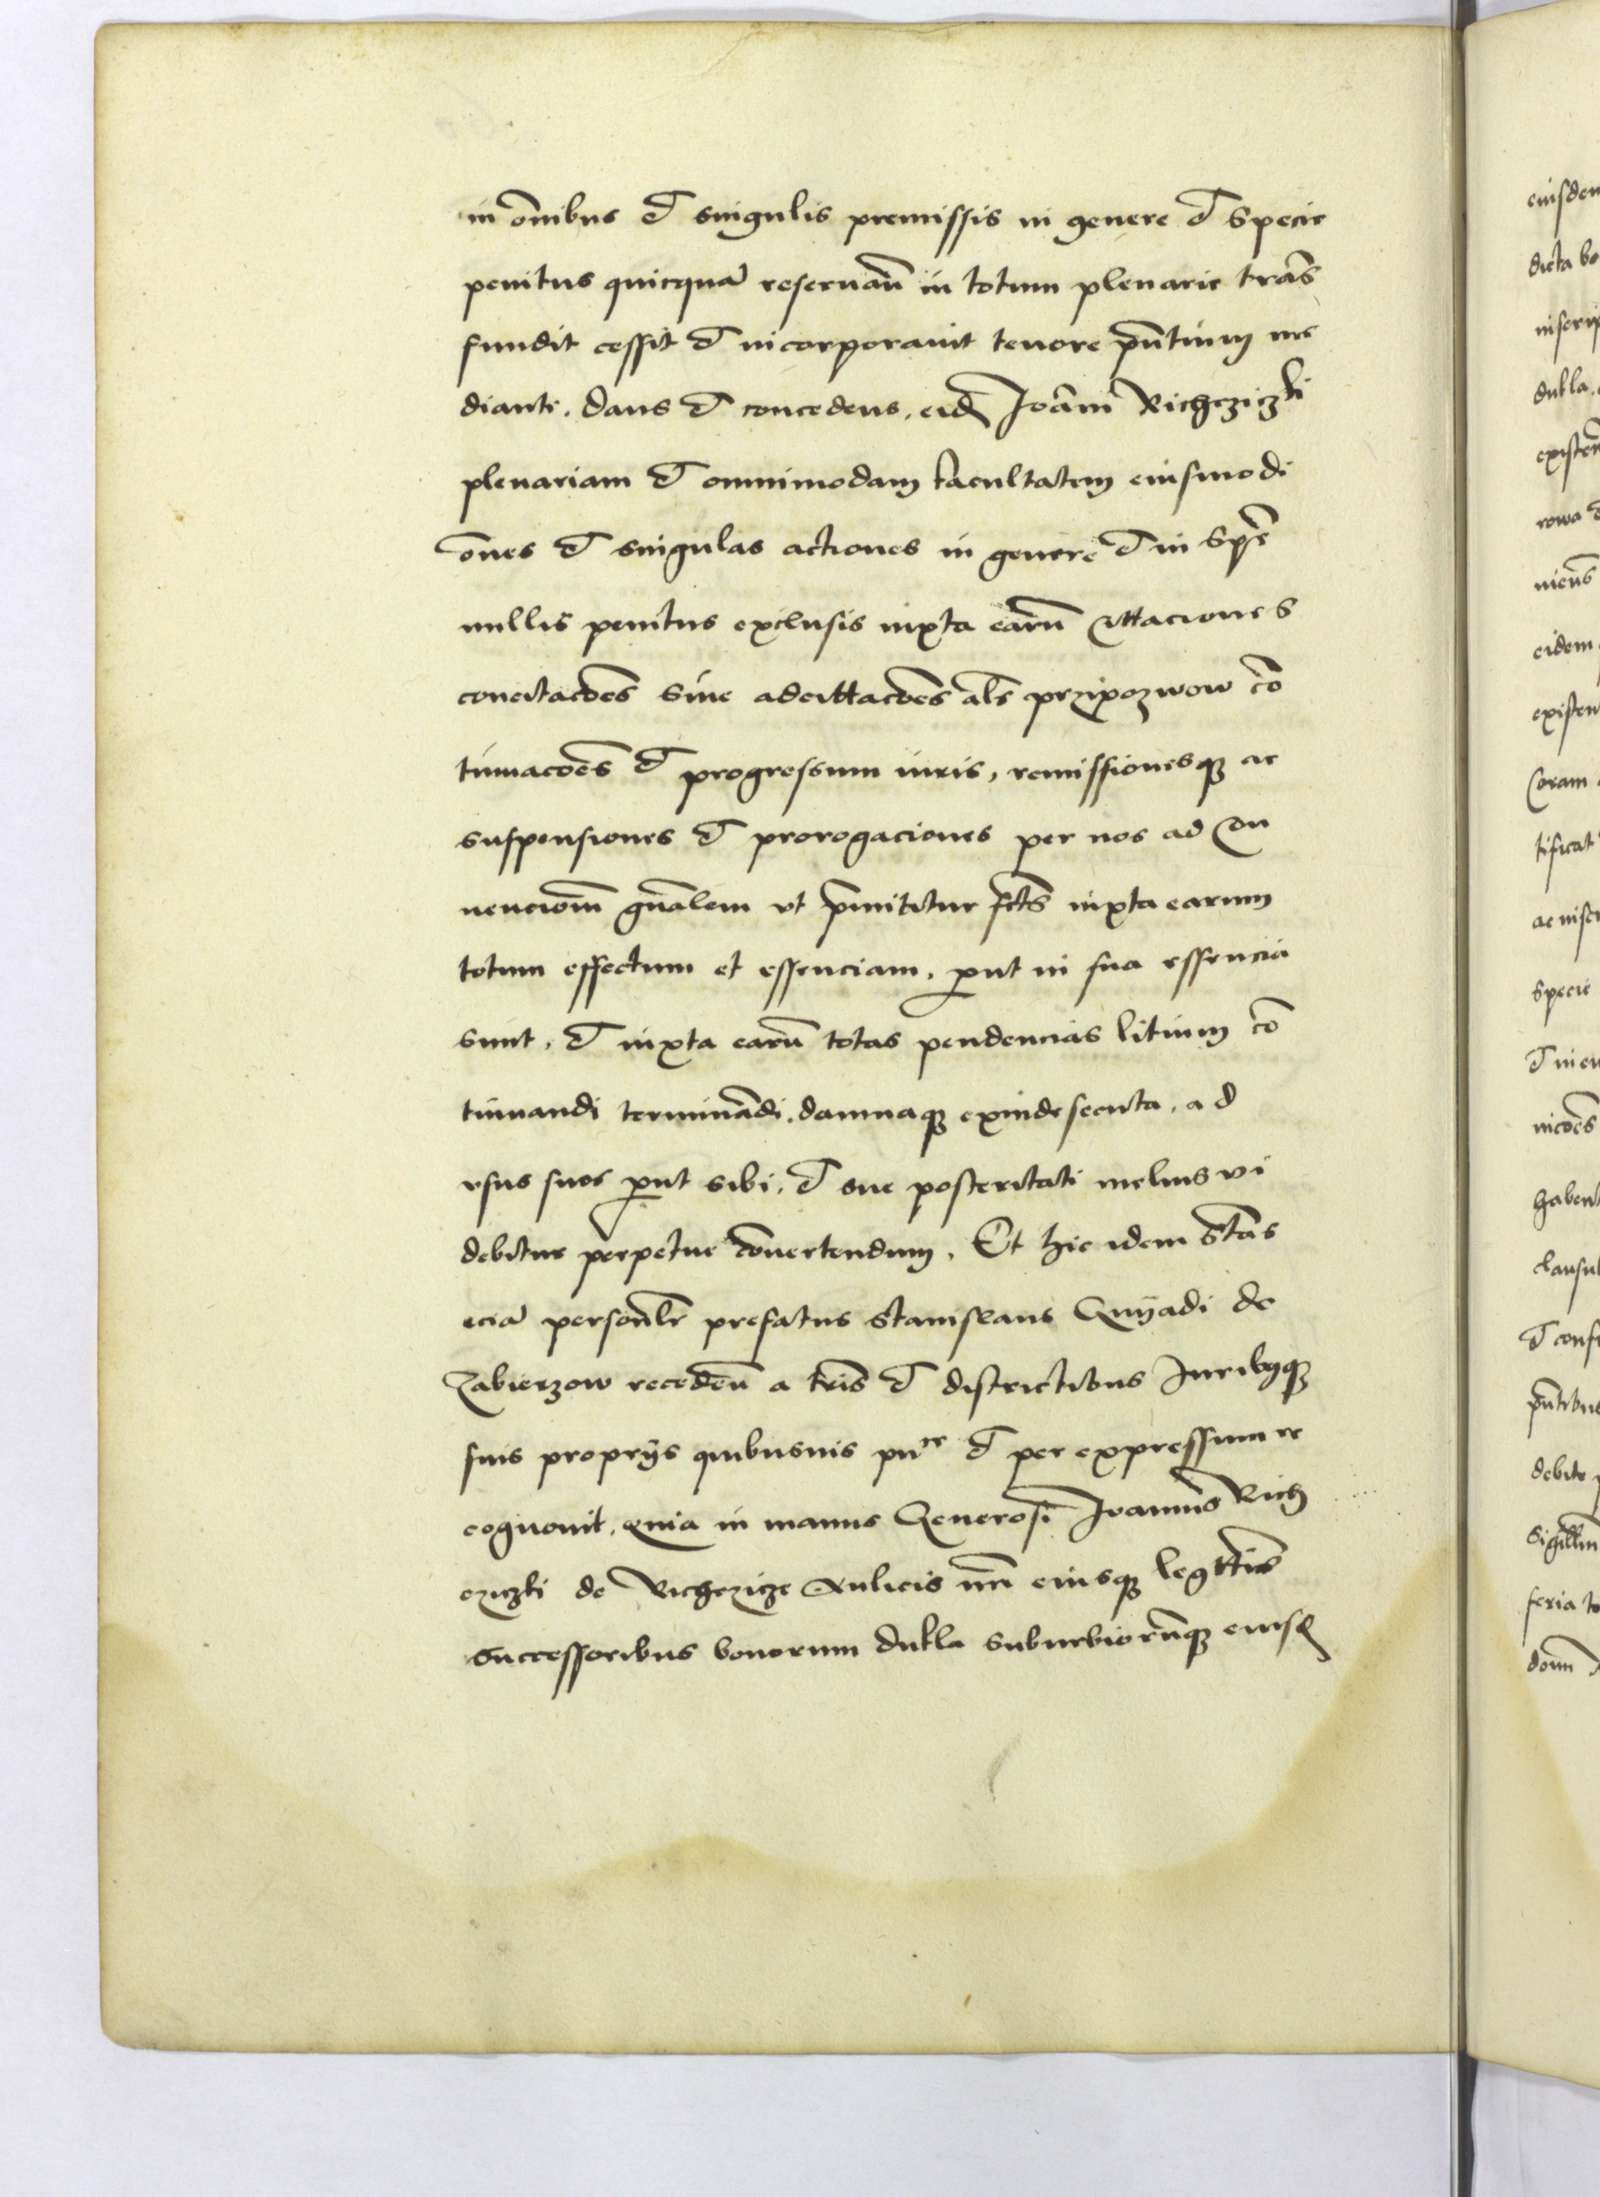 in om̄ibus et singulis premissis in genere et specie
penitus quicquā reseruan̄ in totum plenarie trās
fundit cessit et incorporauit tenore pn̄tium me
diante. Dans et concedens, eid Joan̄i Richcziczki
plenariam et omnimodam facultatem eiusmodi
om̄es et singulas actiones in genere et in spe
nullis penitus exclusis iuxta earū cittaciones
concitacōes siue adcittacōes al̄s przipozwow cō
tumacōes et progressum iuris, remissionesq3 ac
suspensiones et prorogaciones per nos ad Con
uencionem gn̄alem vt p̄mittitur fcts iuxta earum
totum effectum et essenciam, put in sua essencia
sunt, et iuxta earū totas pendencias litium cō
tinuandi terminādi, damnaq3 exinde secuta, ad
vsus suos put sibi, et sue posteritati melius vi
debitur perpetue cōuertendum, Et hic idem Stās
eciā personlr prefatus Stanislaus Quyadi de
Zabierzow receden̄ a tris et districtibus Juribusq3
suis proprijs quibusuis pure et per expressum re
cognouit, quia in manus Generosi Joannis Rich
cziczki de Richczicze Aulicis nr̄i eiusq3 legttis
successoribus bonorum dukla suburbiorumq3 eiusd
eiusdem
dicta bo
inscrip
dukla
existen
rowa
niens
eidem
existen
Coram
tificat
ac inscr
specie
et in eu
nicōes
habent
clausul
et confi
pn̄tibus
debite
Sigillum
feria
dom̄